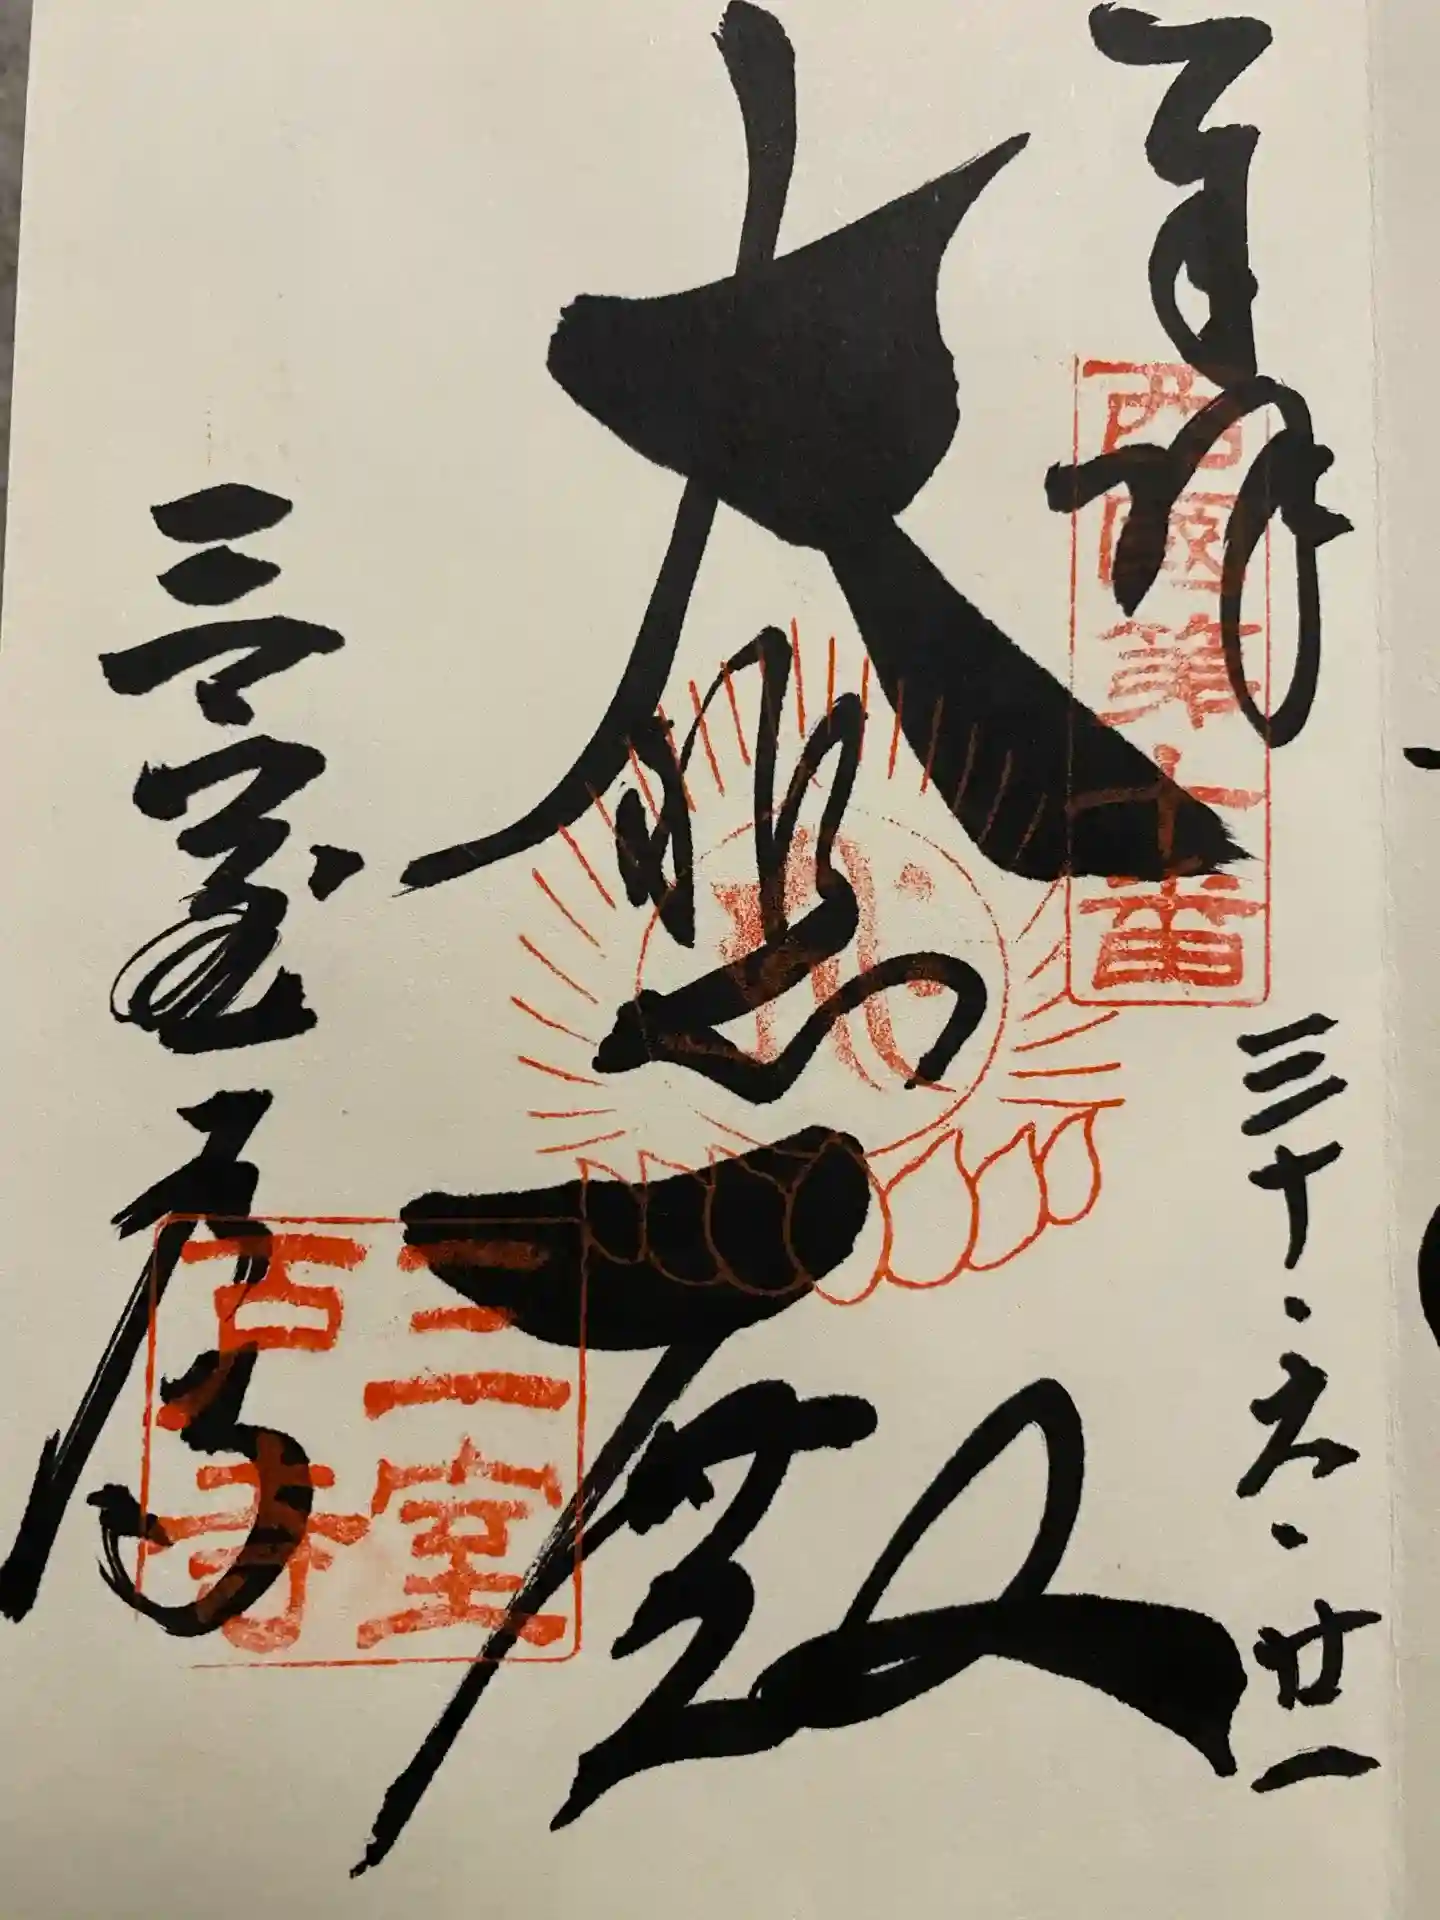 奉拝
西國第十番
三十・六・廿一
大悲殿
三室戸寺
三室
戸寺